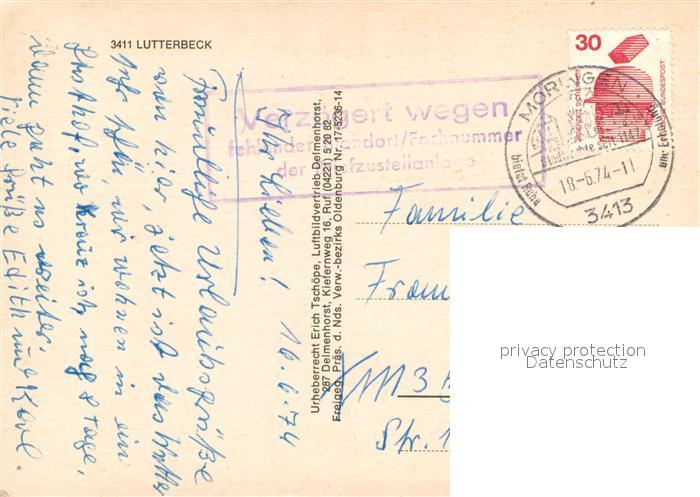 3411 LUTTERBECK
Ihr Lieben! 16.6.74
Familie Urlaubsgrüße
von hier, jetzt ist das Wetter
sehr schön, wir wohnen in ein
Gasthof, noch 8 Tage,
dann geht es weiter.
Viele Grüße Edith und Karl.
Urheberrecht Erich Tschöpe, Luftbildvertrieb Delmenhorst,
287 Delmenhorst, Kiefernweg 16, Ruf (04221) 5 20 82
Freigeg. Präs. d. Nds. Verw.-bezirks Oldenburg Nr. 17-5236-14
Verzögert wegen
fehlender Standort/Fachnummer
der Briefzustellanlage
30
DEUTSCHE BUNDESPOST
MORINGEN
18.-6.74-11
3413
bietet Ruhe
und Erholung
Familie
Fram
Str. 1
privacy protection
Datenschutz